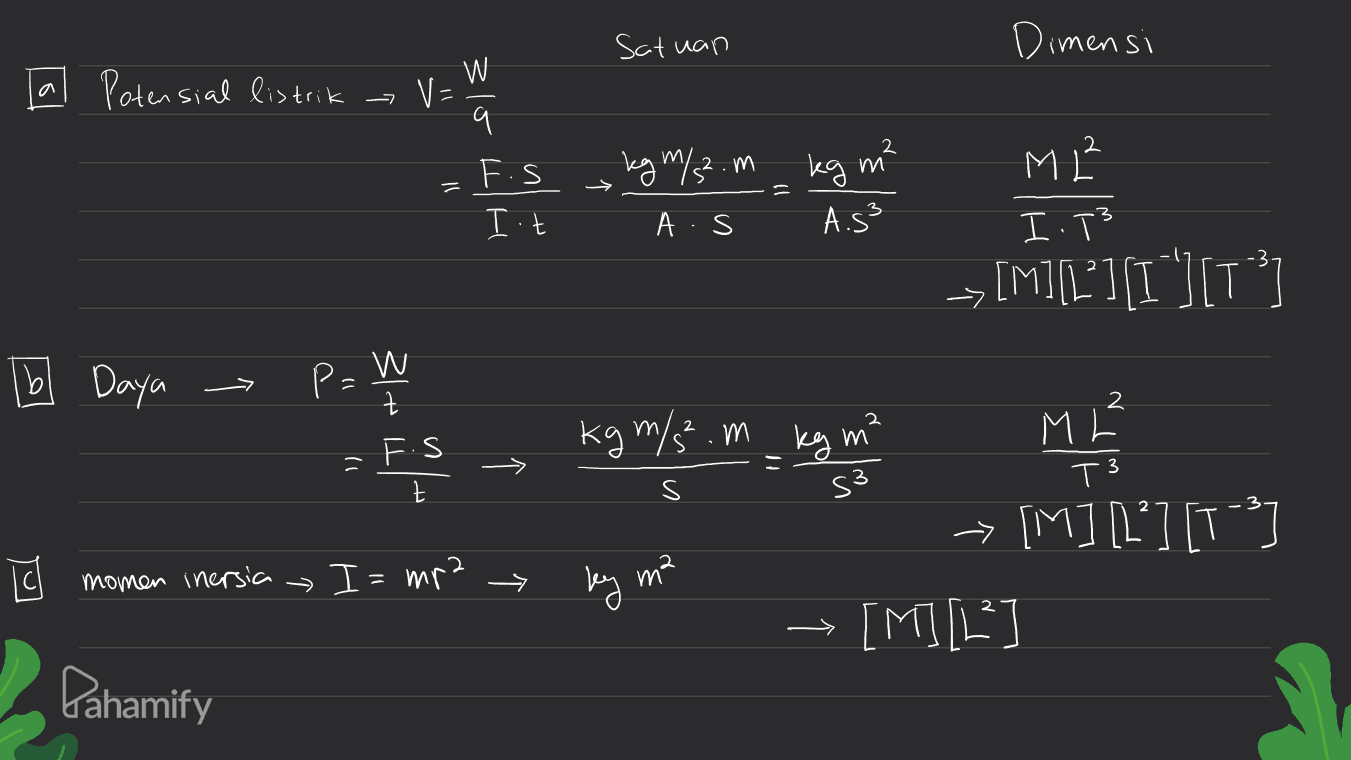 Satuan Dimensi
a Potensial listrik → V = W/q
= F.s/I.t → kg m/s².m / A.s = kg m²/A.s³ ML²/I.T³
→ [M][L²][I⁻¹][T⁻³]
b Daya → P = W/t
= F.s/t → kg m/s².m / s = kg m²/s³ ML²/T³
→ [M][L²][T⁻³]
c momen inersia → I = mr² → kg m²
→ [M][L²]
Pahamify